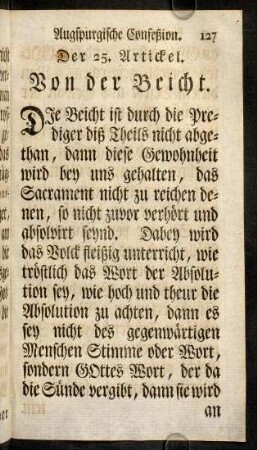 Augspurgische Confeßion. 127
Der 25. Artickel.
Von der Beicht.
DIe Beicht ist durch die Pre-
diger diß Theils nicht abge-
than, dann diese Gewohnheit
wird bey uns gehalten, das
Sacrament nicht zu reichen de-
nen, so nicht zuvor verhört und
absolvirt seynd. Dabey wird
das Volck fleißig unterricht, wie
tröstlich das Wort der Absolu-
tion sey, wie hoch und theur die
Absolution zu achten, dann es
sey nicht des gegenwärtigen
Menschen Stimme oder Wort,
sondern GOttes Wort, der da
die Sünde vergibt, dann sie wird
an